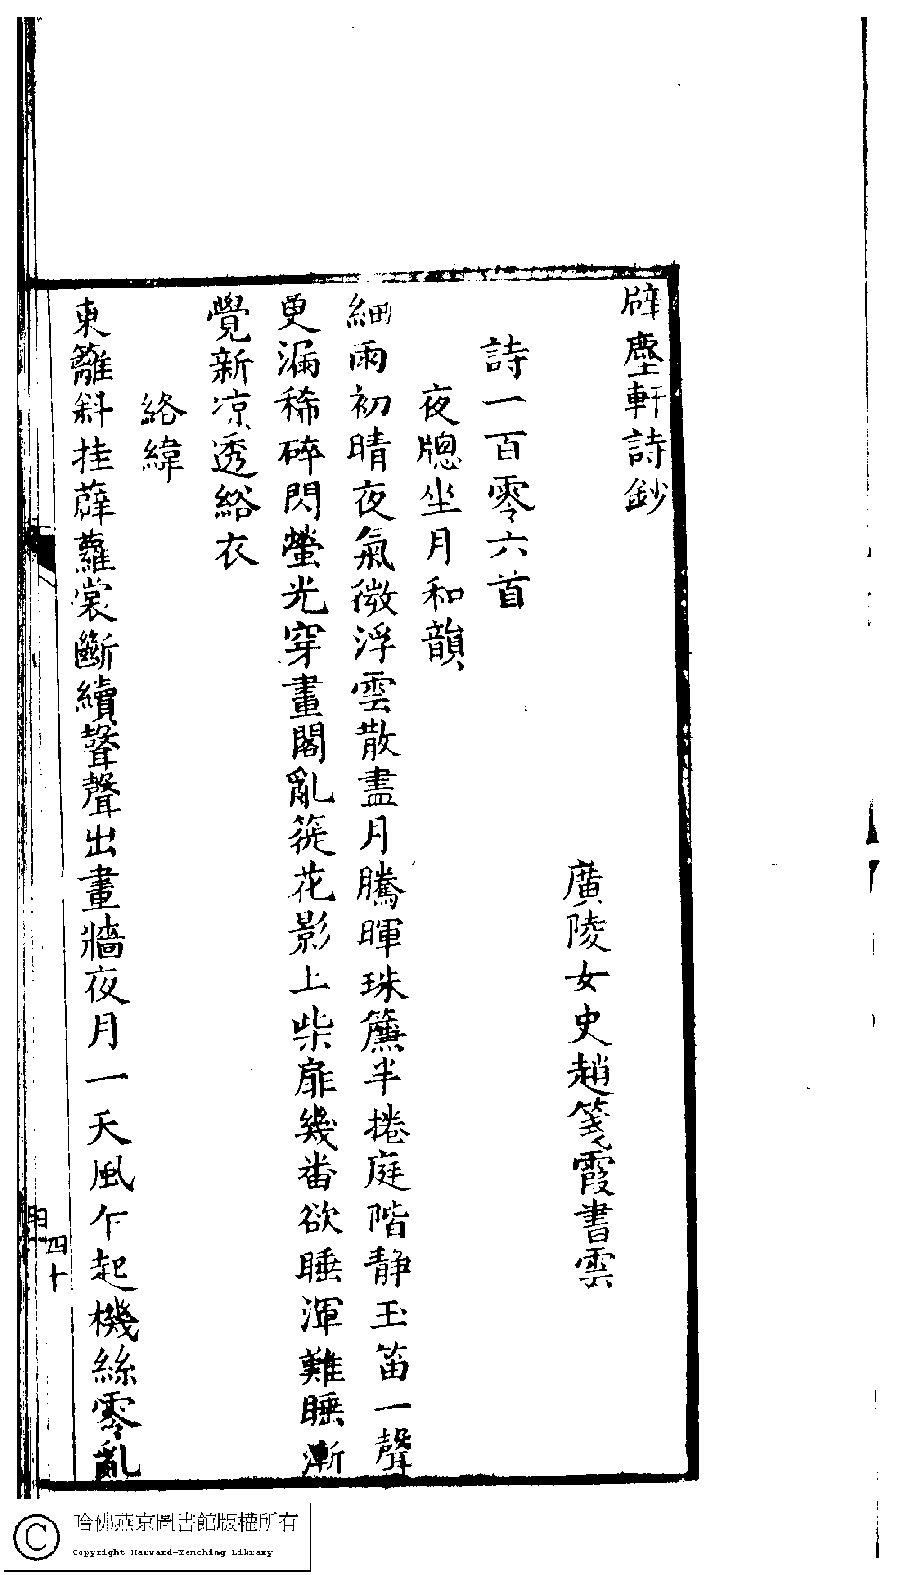 辟塵軒詩鈔
廣陵女史趙箋霞書雲
詩一百零六首
夜牕坐月和韻
細雨初晴夜氣微浮雲散盡月騰暉珠簾半捲庭階靜玉笛一聲
更漏稀碎閃螢光穿畫閣亂篩花影上柴扉幾番欲睡渾難睡漸
覺新凉透綌衣
絡緯
東籬斜挂薜蘿裳斷續聲聲出畫牆夜月一天風乍起機絲零亂
四十
哈佛燕京圖書館版權所有
Copyright Harvard-Yenching Library